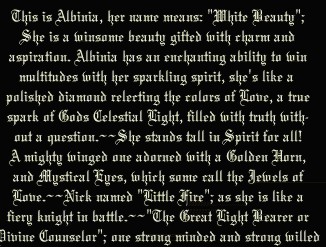 This is Albinia, her name means: "White Beauty";
She is a winsome beauty gifted with charm and
aspiration. Albinia has an enchanting ability to win
multitudes with her sparkling spirit, she's like a
polished diamond relecting the colors of Love, a true
spark of Gods Celestial Light, filled with truth with-
out a question.~~She stands tall in Spirit for all!
A mighty winged one adorned with a Golden Horn,
and Mystical Eyes, which some call the Jewels of
Love.~~Nick named "Little Fire"; as she is like a
fiery knight in battle.~~"The Great Light Bearer or
Divine Counselor"; one strong minded and strong willed